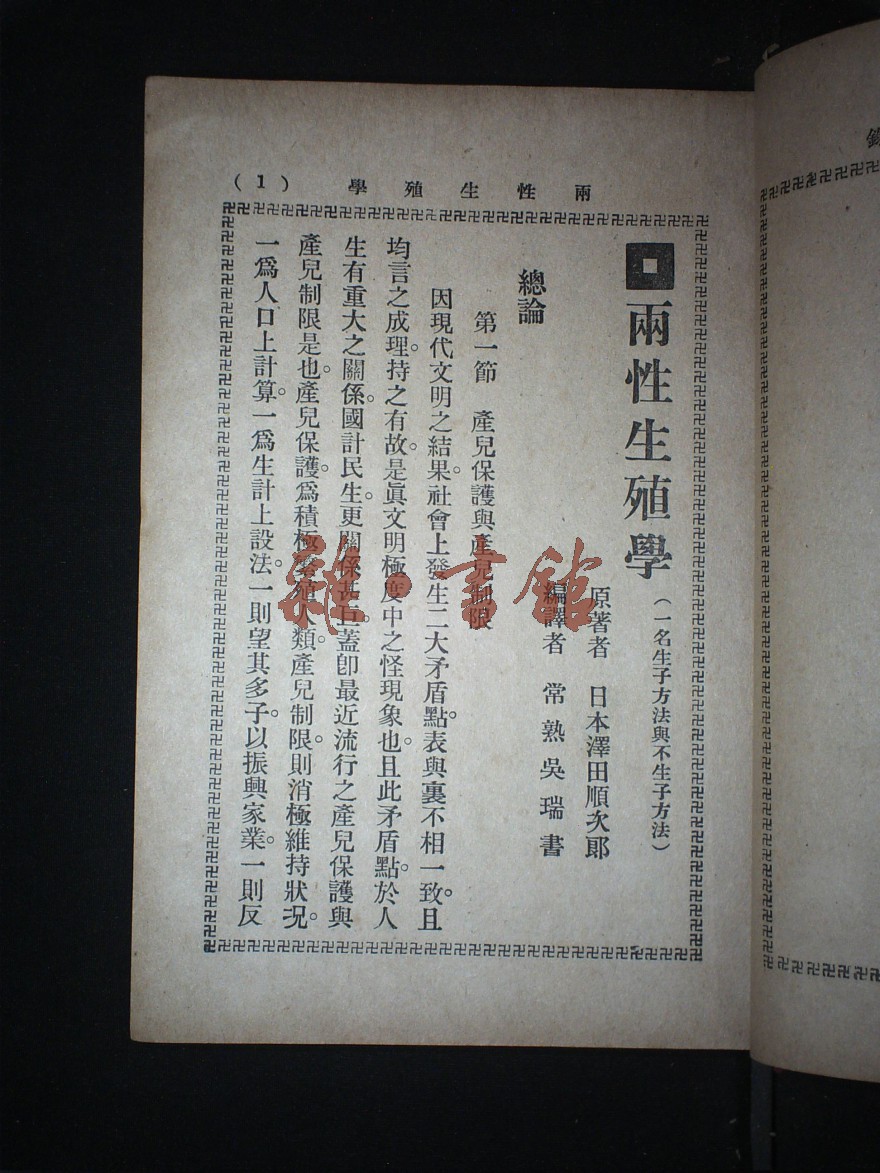 兩性生殖學 (1)
兩性生殖學(一名生子方法與不生子方法)
原著者 日本澤田順次郎
編譯者 常熟吳瑞書
總論
第一節 產兒保護與產兒制限
因現代文明之結果。社會上發生二大矛盾點。表與裏不相一致。且
均言之成理。持之有故。是眞文明極度中之怪現象也。且此矛盾點。於人
生有重大之關係。國計民生。更關係甚巨。蓋卽最近流行之產兒保護與
產兒制限是也。產兒保護。爲積極繁殖人類。產兒制限。則消極維持狀况。
一爲人口上計算。一爲生計上設法。一則望其多子。以振興家業。一則反
雜·書館